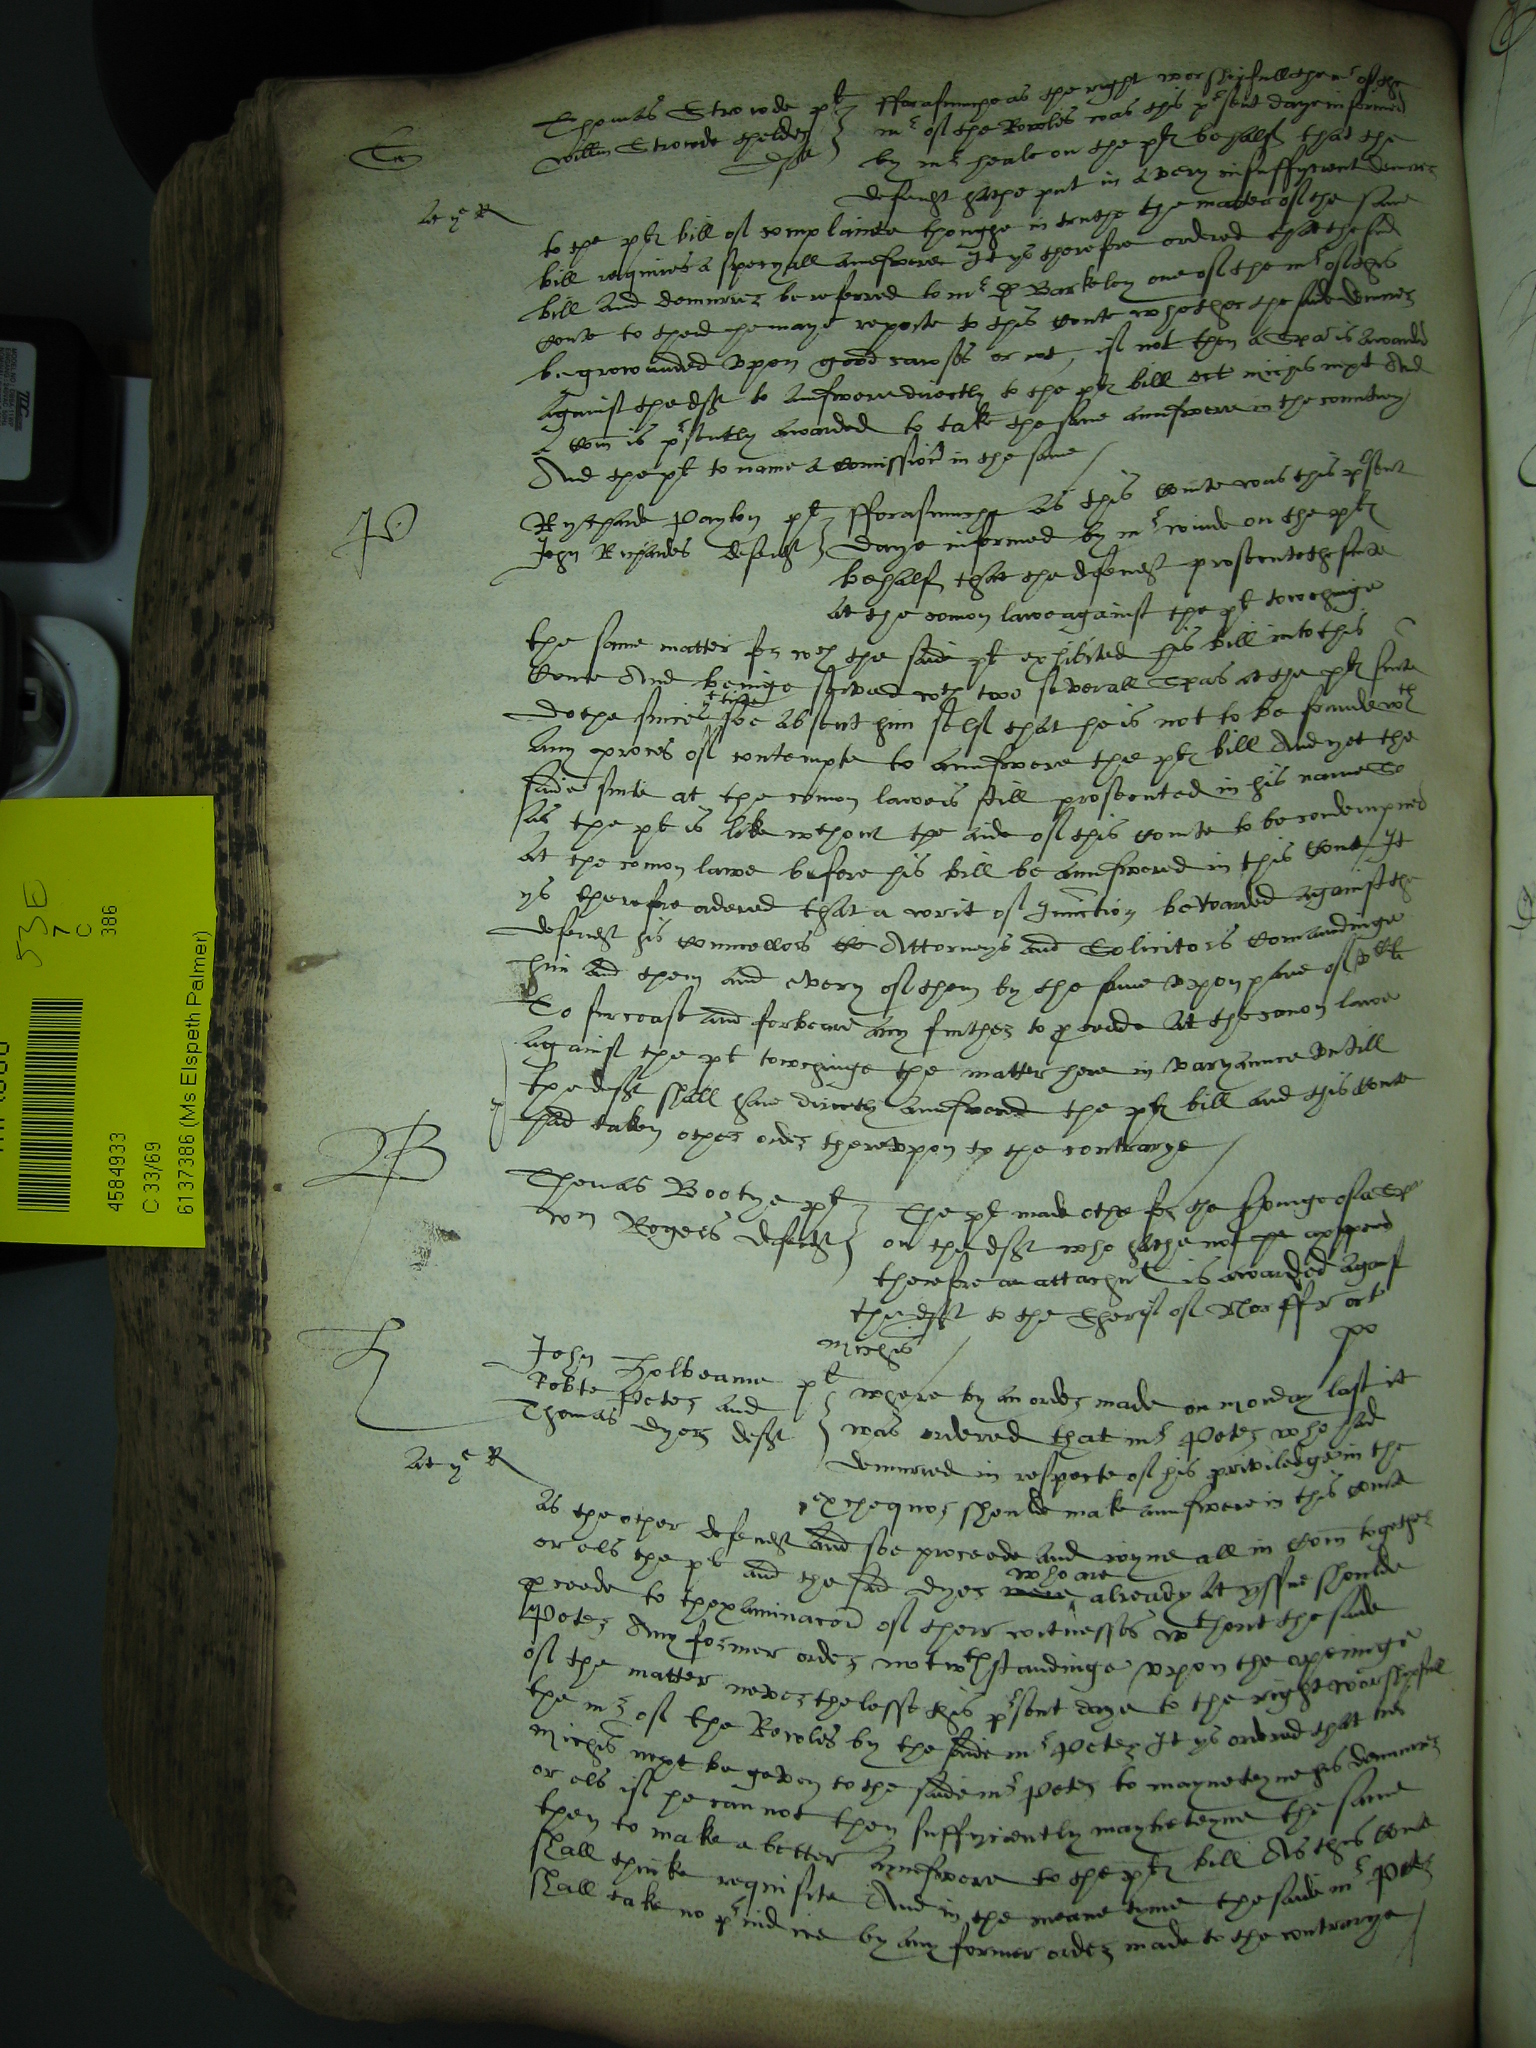 Thomas Strowde pt
Willm Strowde thelder
deft
fforasmuche as the right worshipfull the mr of the
mr of the Rowles was this pnt daye informed
by mr heale on the ptes behalf that the
defendt hathe put in a very insufficient demurrer
At ye R
to the ptes bill of complainte thoughe in truthe the matter of the same
bill requires a specyall aunswere It ys therefore ordered that the said
bill and demurrer be referred to mr D Barkeley one of the mrs of this
Courte to thend he maye reporte to this Courte whether the saide demurrer
be growunded upon good causes or not, if not then a Spa is awarded
against the deft to aunswere directly to the ptes bill oct michis next And
a Com is presently awarded to take the same aunswere in the countrey
And the pt to name a Comission in the same
P
Rycharde Payton pt
John Richardes defendt
fforasmuche as this Courte was this present
daye informed by mr winde on the ptes
behalf that the defendt prosecutethe sute
at the comon lawe against the pt towchinge
the same matter for wch the saide pt exhibited his bill into this
Courte And beinge served wth two severall Spas at the ptes sute
dothe since yt tyme soe absent him self that he is not to be founde wth
any proces of contempte to aunswere the ptes bill And yet the
saide sute at the comon lawe is still prosecuted in his name So
as the pt is like wthout the aide of this Courte to be condempned
at the comon lawe before his bill be aunswered in this Courte, It
ys therefore ordered that a writ of Iniunction be awarded against the
defendt his Councellors Attorneys and Solicitors Comaundinge
him and them and every of them by the same upon payne of
To surcease and forbeare any further to procede at the comon lawe
against the pt towchinge the matter here in varyaunce untill
the deft shall have directly aunswered the ptes bill and this Courte
had taken other order thereupon to the contrarye
B
Thomas Bootye pt
Wm Rogers defendt
The pt made othe for the servinge of a Spa
on the deft who hathe not appered
therefore an attachmt is awarded against
the deft to the Sherif of Norff r oct
michis
po
H
John Holbeame pt
Robte Peter and
Thomas Dyer deftes
where by an order made on monday last it
was ordered that mr Peter who had
demurred in respecte of his priviledge in the
At ye R
exchequer should make aunswere in this Courte
as the other defendt and soe procede and ioyne all in Com together
or els the pt and the said Dyer who are already at yssue should
procede to thexaminacon of their witnesses wthout the saide
Peter Any former order notwthstandinge upon the openinge
of the matter neverthelesse this present daye to the right worshipfull
the mr of the Rowles by the saide mr Peter It ys ordered that
michis next be geven to the saide mr Peter to mayneteyne his demurrer
or els if he can not then suffyciently mayneteyne the same
then to make a better aunswere to the ptes bill As this Courte
shall thinke requisite And in the meane tyme the saide mr Peter
shall take no preiudice by any former order made to the contrarye
53E
7
C
386
4584933
C 33/69
6137386 (Ms Elspeth Palmer)